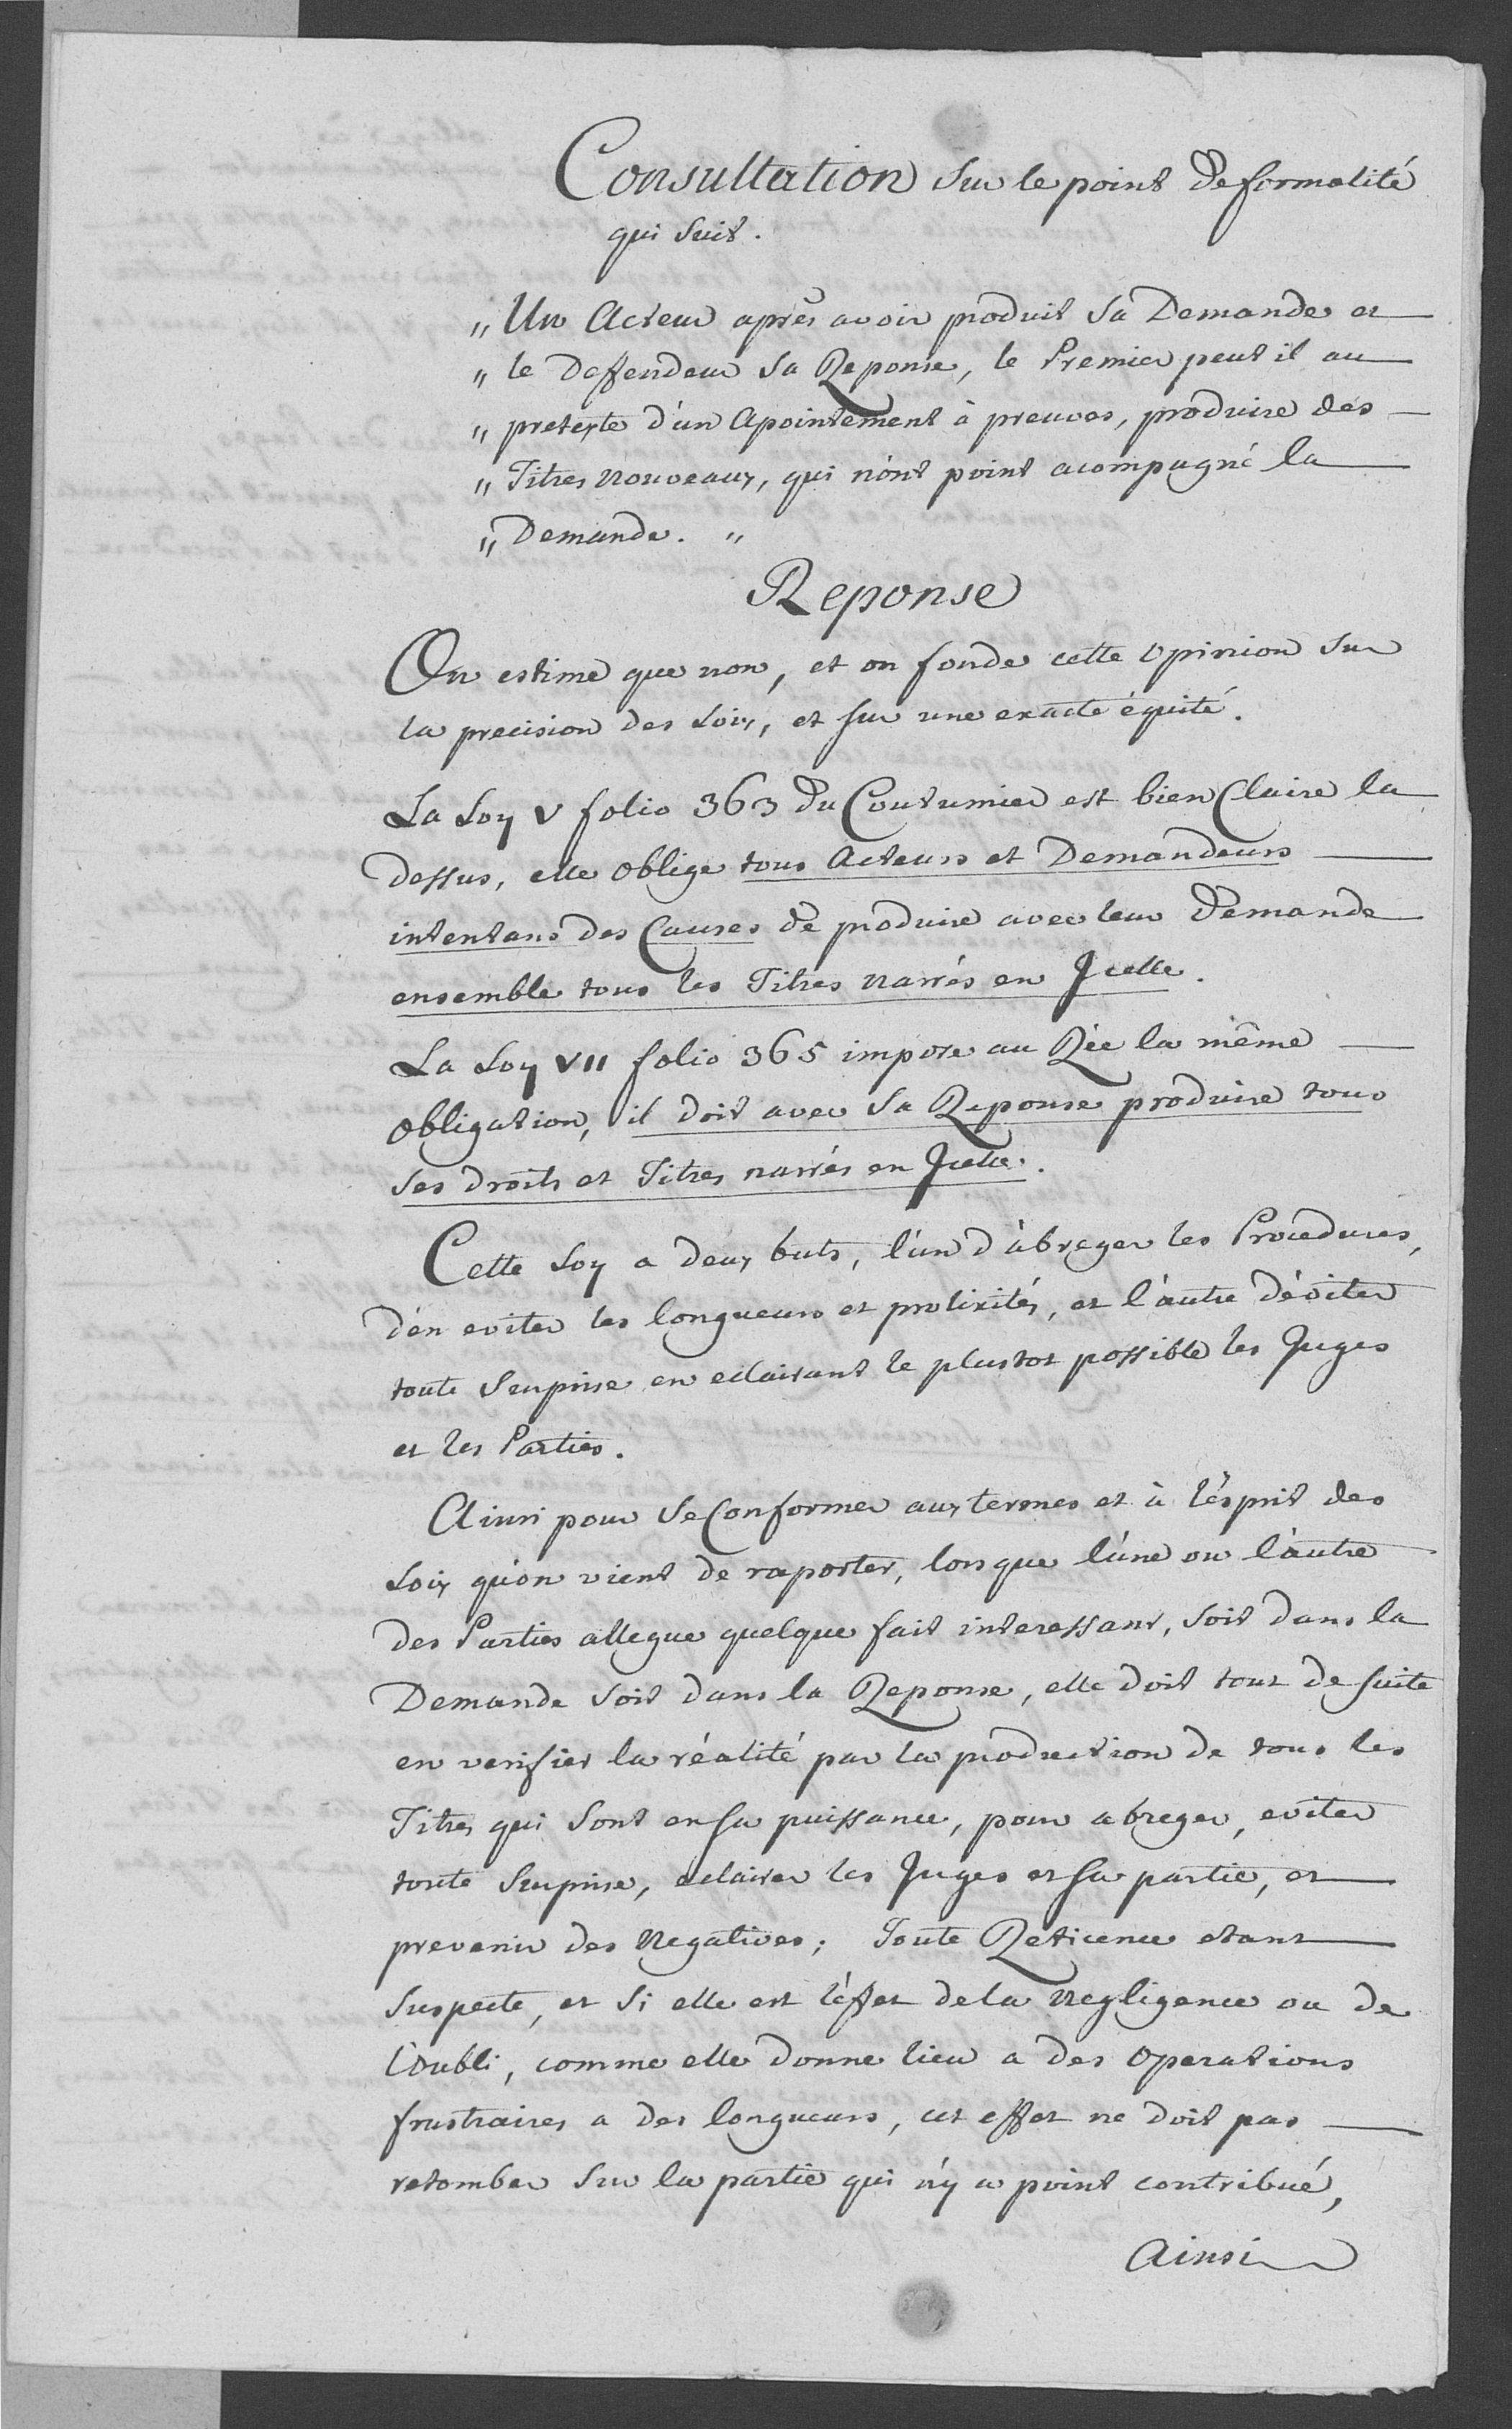 Consultation Sur le point de formalité
qui Suit.
„ Un Acteur aprés avoir produit Sa Demande et
„ le Deffendeur Sa Reponse, le Premier peut il au
„ pretexte d'un Apointement à preuves, produire des
„ Titres nouveaux, qui n'ont point acompagné la
„ Demande. „
Reponse
On estime que non, et on fonde cette opinion Sur
la precision des Loix, et sur une exacte équité.
La Loy V folio 363 du Coutumier est bien Claire la
dessus, elle oblige tous Acteurs et Demandeurs
intentans des Causes de produire avec leur Demande
ensemble tous les Titres narrés en Icelle.
La Loy VII folio 365 impose au Rée la même
obligation, il doit avec Sa Reponse produire tous
Ses droits et Titres narrés en Icelle.
Cette Loy a deux buts, l'un d'abreger les Procedures,
d'en eviter les longueurs et prolixités, et l'autre d'éviter
toute Surprise en eclairant le plustot possible les Juges
et les Parties.
Ainsi pour Se Conformer aux termes et à l'ésprit des
Loix qu'on vient de raporter, lorsque l'une ou l'autre
des Parties allegue quelque fait interessant, soit dans la
Demande soit dans la Reponse, elle doit tout de suite
en verifier la réalité par la production de tous les
Titres qui Sont en sa puissance, pour abreger, eviter
toute Surprise, eclairer les Juges et sa partie, et
prevenir des Negatives; Toute Reticence etant
Suspecte, et Si elle est l'éffet de la Negligence ou de
l'oubli, comme elle donne lieu a des operations
frustraires a des longueurs, cet effet ne doit pas
retomber Sur la partie qui n'y a point contribué,
Ainsi